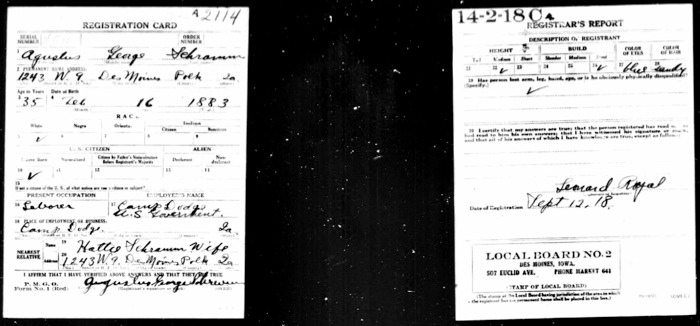 REGISTRATION CARD
A 2114
SERIAL NUMBER
ORDER NUMBER
Agustus George Schramm
PERMANENT HOME ADDRESS:
1243 W. 9. Des Moines Polk Ia
Age in Years Date of Birth
35 Feb 16 1883
RACE
White Negro Oriental Indian
Citizen
U. S. CITIZEN ALIEN
Native Born Naturalized Citizen by Father's Naturalization Before Registrant's Majority Declarant
If not a citizen of the U. S., of what nation are you a citizen or subject?
PRESENT OCCUPATION EMPLOYER'S NAME
Laborer Camp Dodge
U.S Government.
PLACE OF EMPLOYMENT OR BUSINESS:
Camp Dodge. Ia.
NEAREST RELATIVE
Name Hattie Schramm Wife
Address 1243 W. 9. Des Moines Polk Ia
I AFFIRM THAT I HAVE VERIFIED ABOVE ANSWERS AND THAT THEY ARE TRUE
P. M. G. O.
Form No. 1 (Red)
Augustus George Schramm
14-2-18 C A
REGISTRAR'S REPORT
DESCRIPTION OF REGISTRANT
HEIGHT BUILD COLOR OF EYES COLOR OF HAIR
Tall Medium Short Slender Medium Stout
blue Sandy
Has person lost arm, leg, hand, eye, or is he obviously physically disqualified?
(Specify.)
I certify that my answers are true; that the person registered has read or has had read to him his own answers; that I have witnessed his signature or mark, and that all of his answers of which I have knowledge are true, except as follows:
Leonard Royal
Date of Registration Sept 12, 18.
LOCAL BOARD NO. 2
DES MOINES, IOWA.
507 EUCLID AVE. PHONE MARKET 641
(STAMP OF LOCAL BOARD)
(The stamp of the Local Board having jurisdiction of the area in which the registrant has his permanent home shall be placed in this box.)